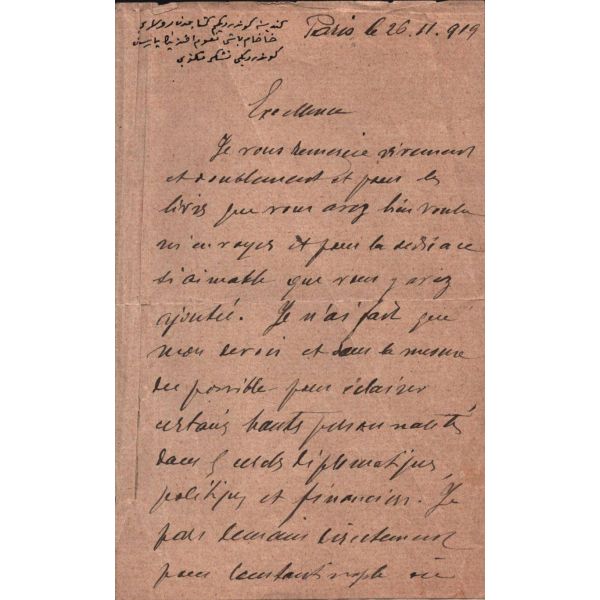 Paris le 26.11.919
Excellence
Je vous remercie vivement
et doublement et pour les
livres que vous avez bien voulu
m'envoyer et pour la dédicace
si aimable que vous y avez
ajouté. Je n'ai fait que
mon devoir et dans la mesure
du possible pour éclairer
certains hauts personnalités
dans les cercles diplomatiques,
politiques et financiers. Je
pars demain directement
pour Constantinople où